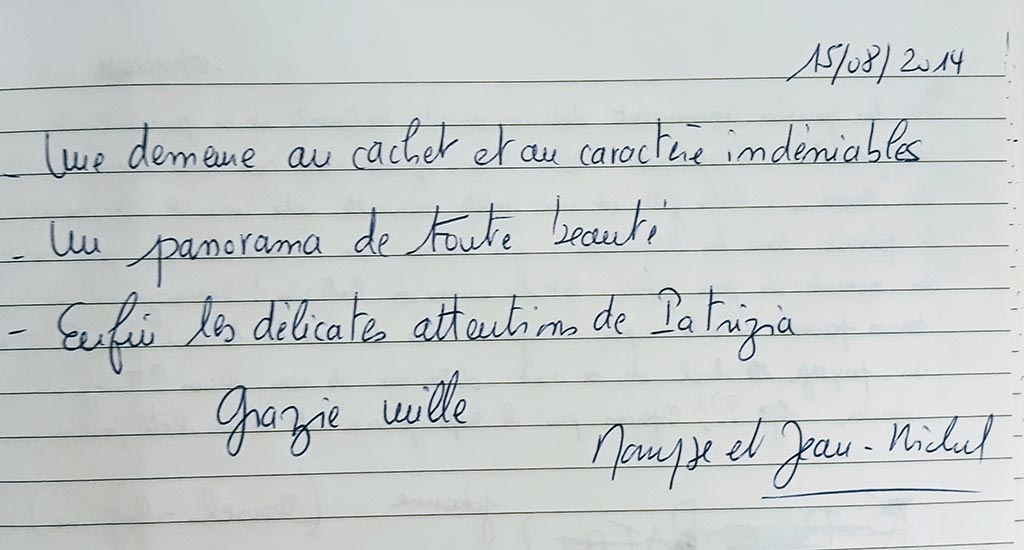 15/08/2014
- Une demeure au cachet et au caractère indéniables
- Un panorama de toute beauté
- Enfin les délicates attentions de Patrizia
Grazie mille
Maryse et Jean-Michel